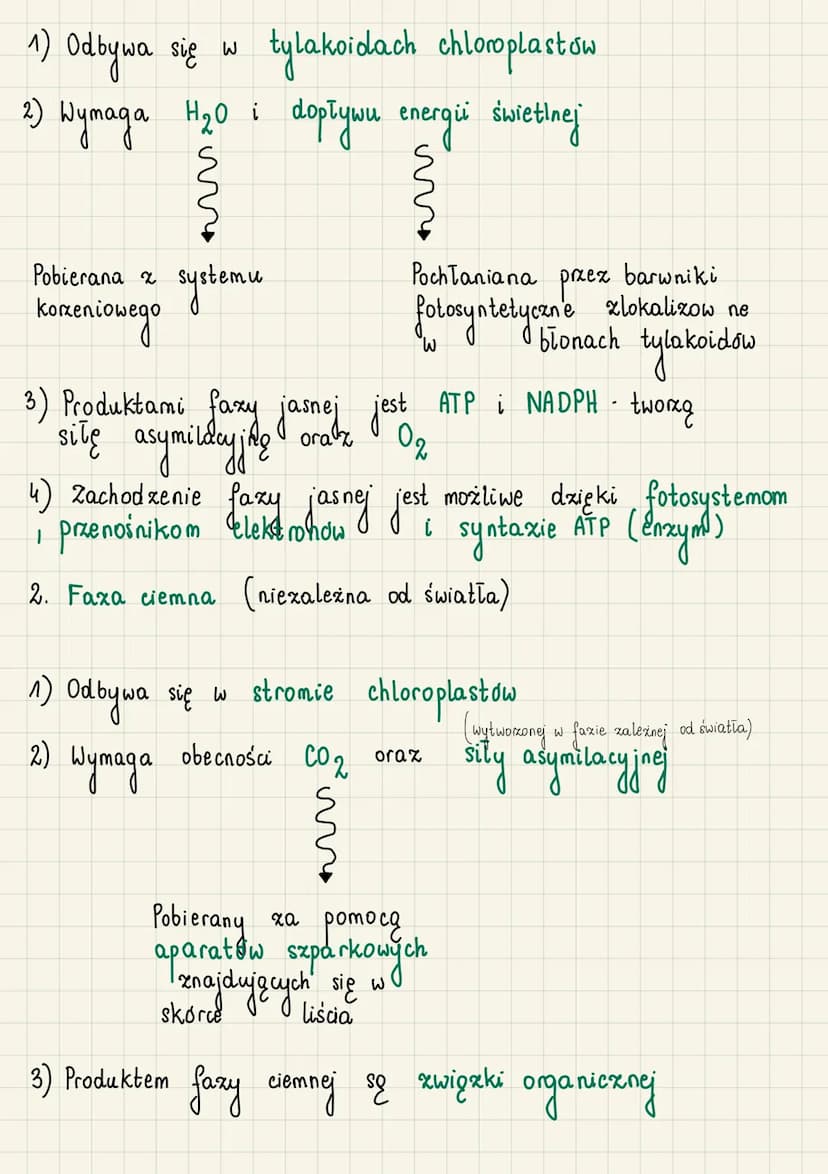 1) Odbywa się w tylakoidach chloroplastów
2) Wymaga H₂O i dopływu energii świetlnej
Pobierana z systemu
korzeniowego
Pochłaniana przez barwniki
fotosyntetyczne zlokalizow ne
w błonach tylakoidów
3) Produktami fazy jasnej jest ATP i NADPH - tworzą
siłę asymilacyjną oraz O₂
4) Zachodzenie fazy jasnej jest możliwe dzięki fotosystemom
, przenośnikom elektronów i syntazie ATP (enzym)
2. Faza ciemna (niezależna od światła)
1) Odbywa się w stromie chloroplastów
(wytworzonej w fazie zależnej od światła)
2) Wymaga obecności CO₂ oraz siły asymilacyjnej
Pobierany za pomocą
aparatów szparkowych
znajdujących się w
skórce liścia
3) Produktem fazy ciemnej są związki organicznej